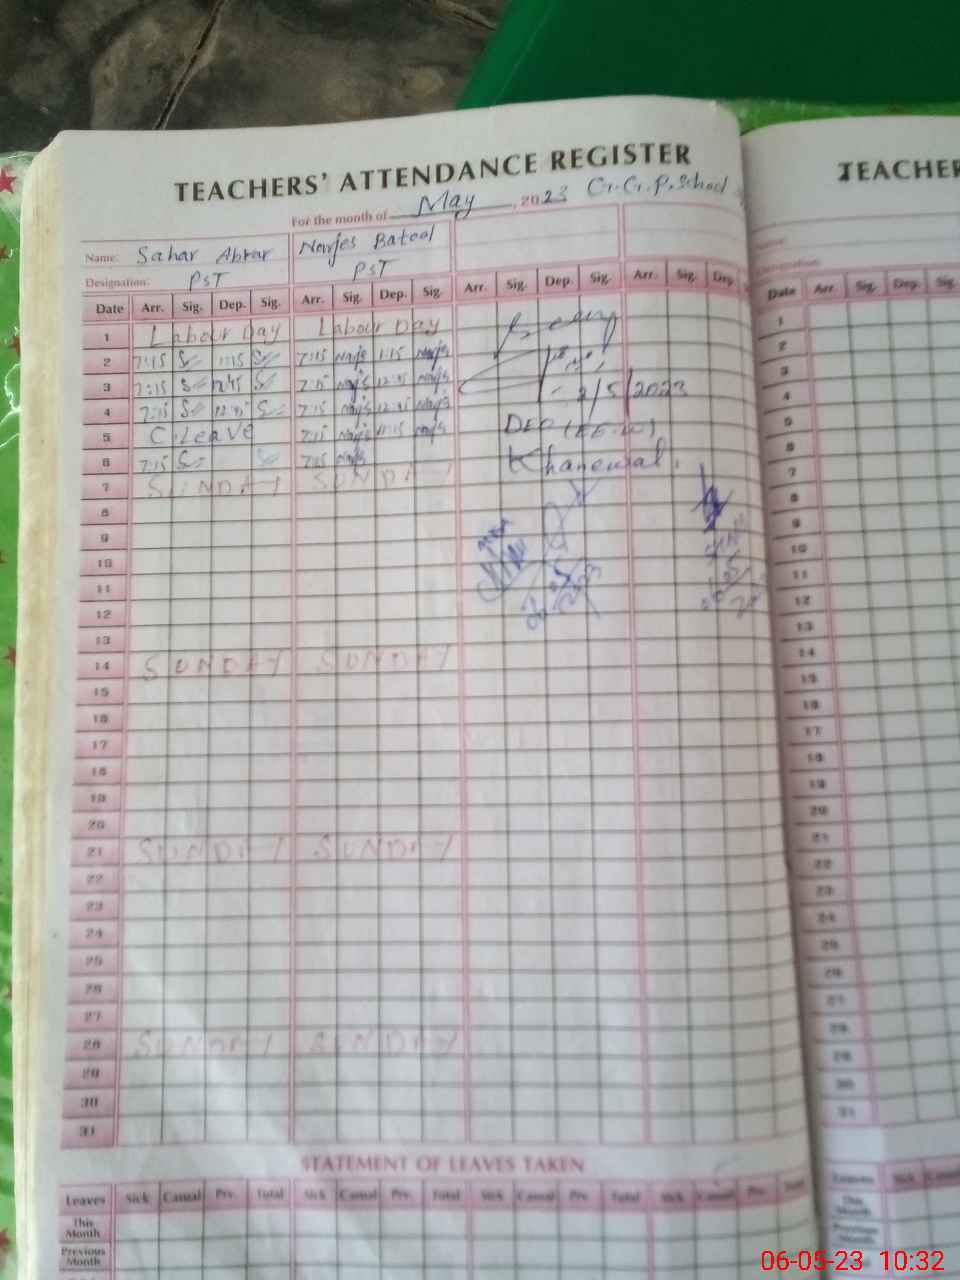 TEACHERS' ATTENDANCE REGISTER
For the month of May, 2023 G.G.P. School
Name: Sahar Abrar Narjes Batool
Designation: PST PST
Date Arr. Sig. Dep. Sig. Arr. Sig. Dep. Sig. Arr. Sig. Dep. Sig. Arr. Sig. Dep
1 Labour Day Labour Day
2 7:15 1:15 7:15 Narjs 1:15 Narjs
3 7:15 12:45 7:15 Narjs 12:45 Narjs
4 7:15 12:45 7:15 Narjs 12:45 Narjs 2/5/2023
5 C.Leave 7:15 Narjs 11:15 Narjs DEO (EE-W)
6 7:15 7:15 Narjs Khanewal.
7 SUNDAY SUNDAY
8
9
10
11
12
13
14 SUNDAY SUNDAY
15
16
17
18
19
20
21 SUNDAY SUNDAY
22
23
24
25
26
27
28 SUNDAY SUNDAY
29
30
31
STATEMENT OF LEAVES TAKEN
Leaves Sick Casual Prv. Total Sick Casual Prv. Total Sick Casual Prv. Total Sick Casual Prv. Total
This Month
Previous Month
TEACHER
Name:
Designation:
Date Arr. Sig. Dep. Sig.
1
2
3
4
5
6
7
8
9
10
11
12
13
14
15
16
17
18
19
20
21
22
23
24
25
26
27
28
29
30
31
Leaves Sick Casual
This Month
Previous Month
06-05-23 10:32